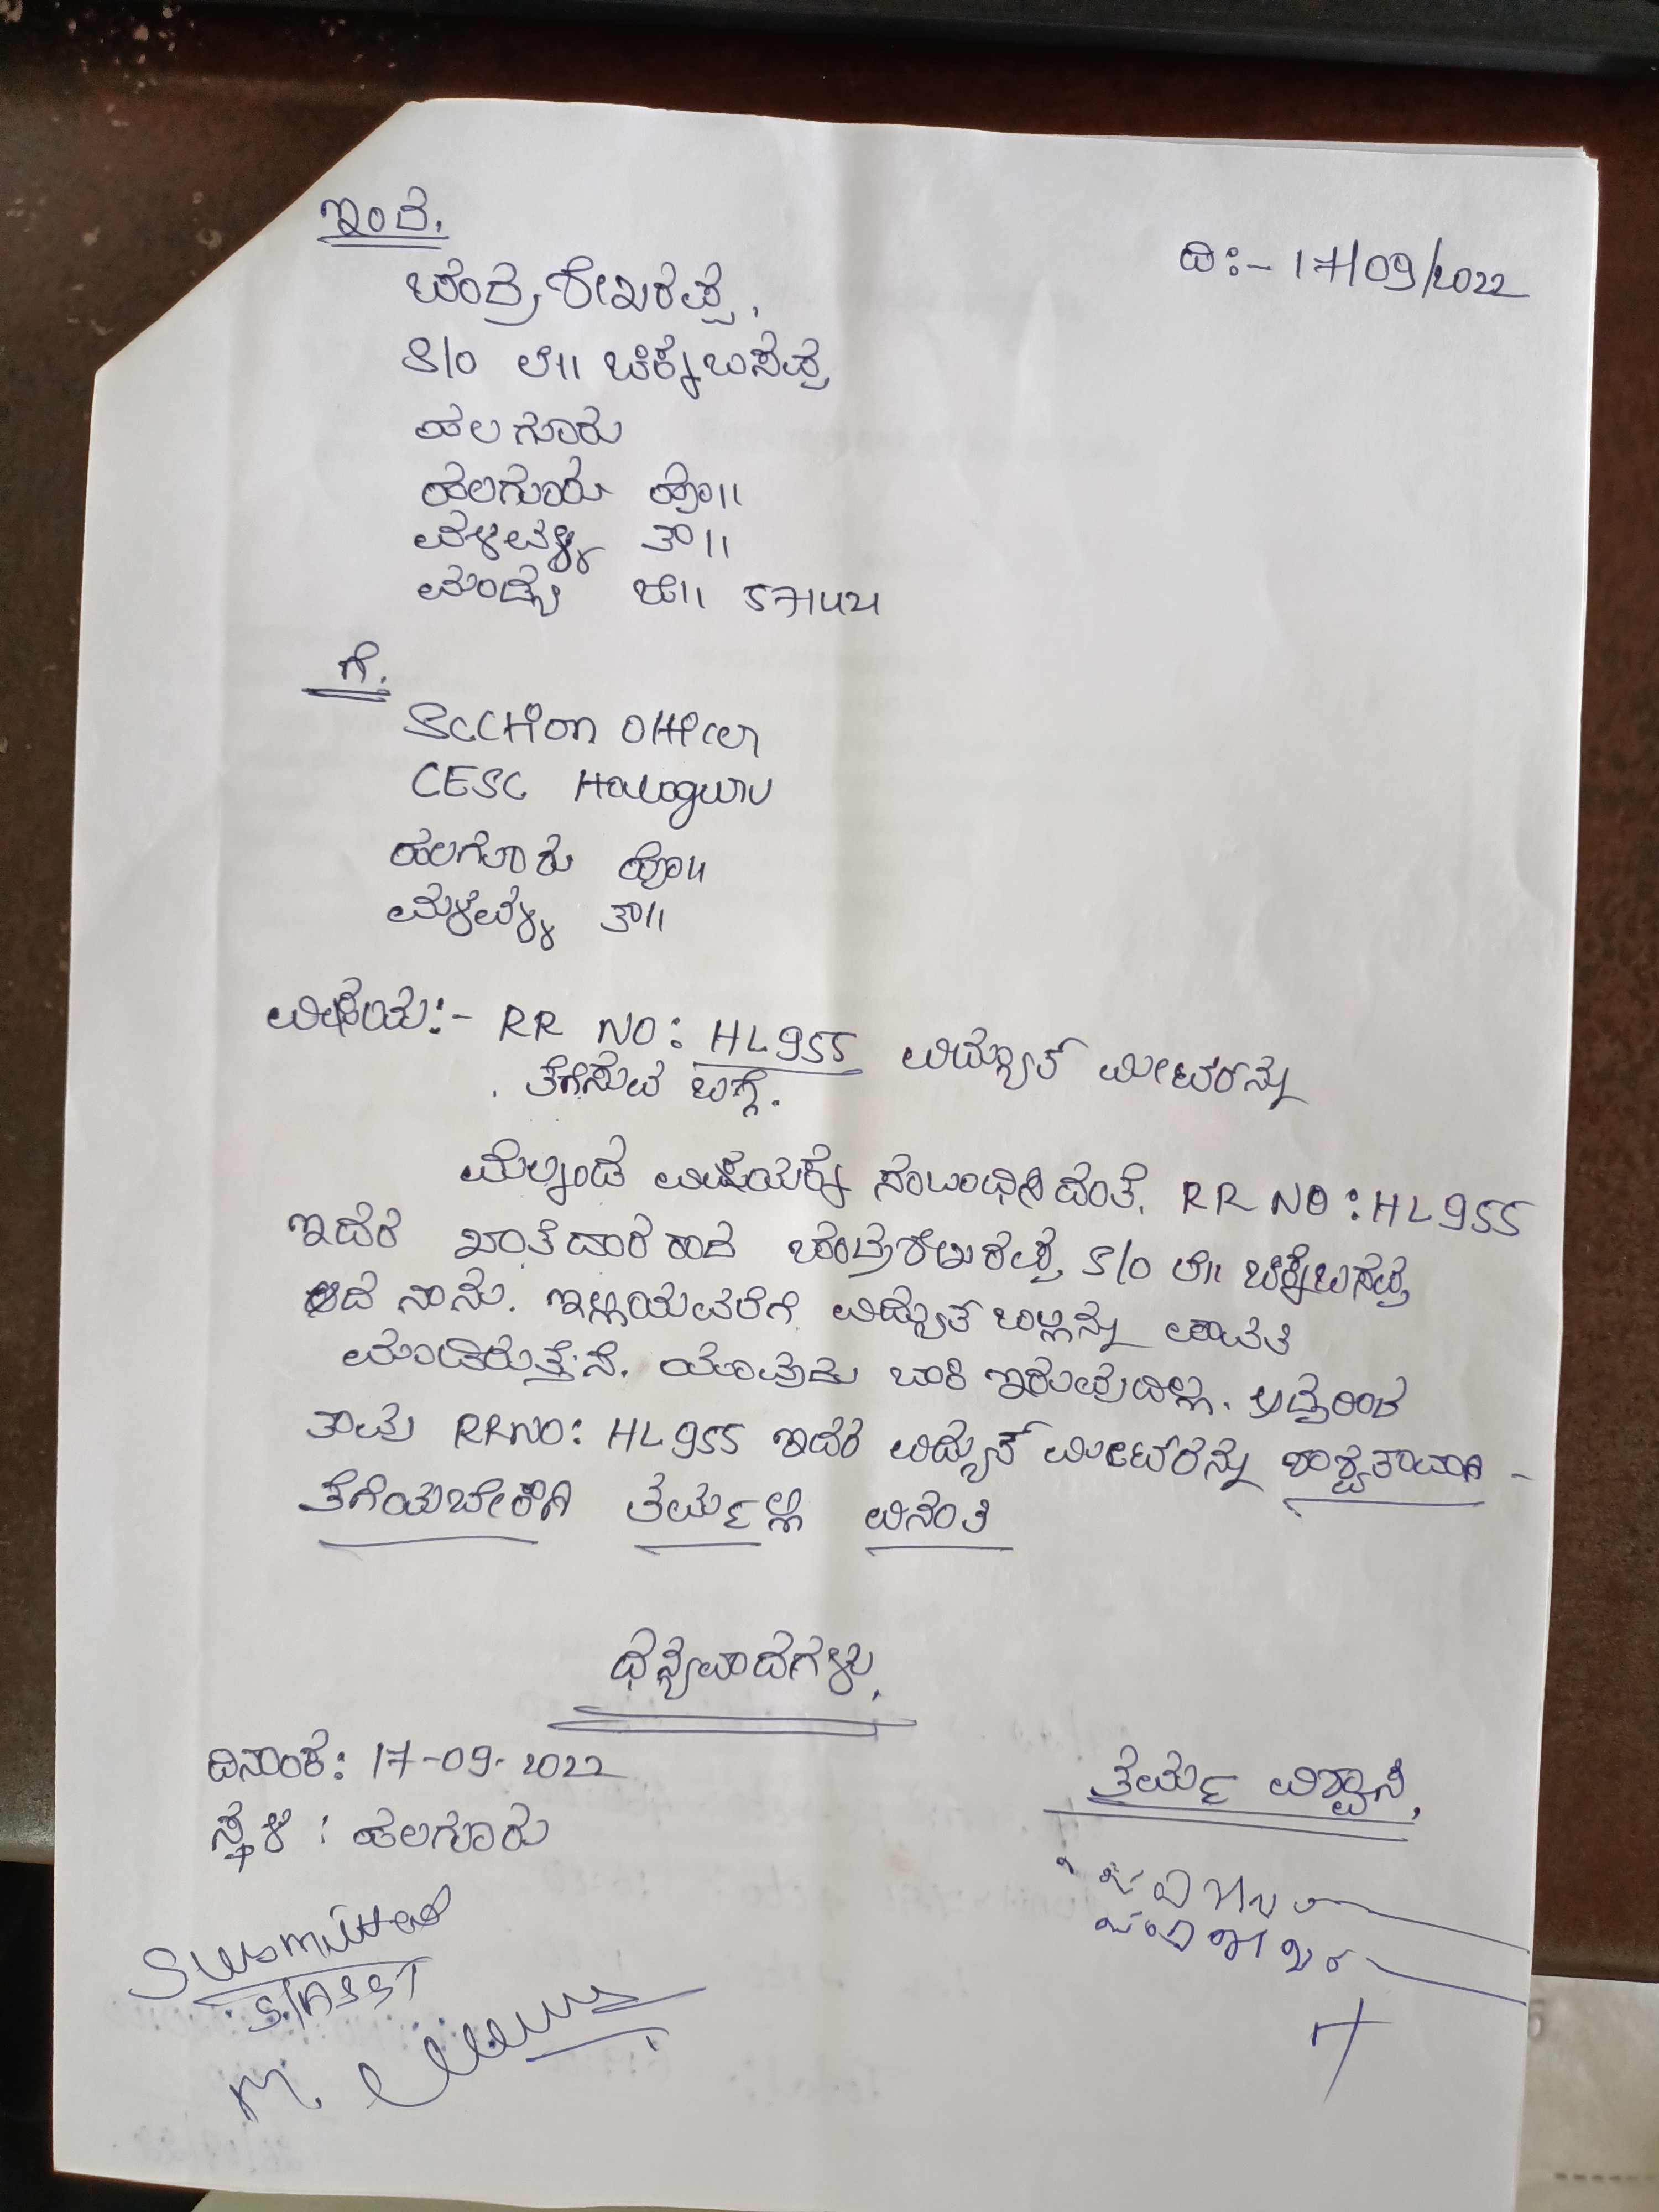 ಇಂದ.
ದಿ:- 17/09/2022
ಚಂದ್ರಶೇಖರಪ್ಪ,
S/o ಲೇ|| ಚಿಕ್ಕಬಸಪ್ಪ
ಹಲಗೂರು
ಹಲಗೂರು ಪೊ||
ಮಳವಳ್ಳಿ ತಾ||
ಮಂಡ್ಯ ಜಿ|| 571421
ಗೆ.
Section Officer
CESC Halaguru
ಹಲಗೂರು ಪೊ||
ಮಳವಳ್ಳಿ ತಾ||
ವಿಷಯ:- RR NO: HL955 ವಿದ್ಯುತ್ ಮೀಟರನ್ನು
ತೆಗೆಸುವ ಬಗ್ಗೆ.
ಮೆಲ್ಕಂಡ ವಿಷಯಕ್ಕೆ ಸಂಬಂಧಿಸಿದಂತೆ, RR NO: HL955
ಇದರ ಖಾತೆದಾರರಾದ ಚಂದ್ರಶೇಖರಪ್ಪ S/o ಲೇ|| ಚಿಕ್ಕಬಸಪ್ಪ
ಆದ ನಾನು. ಇಲ್ಲಿಯವರೆಗೆ ವಿದ್ಯುತ್ ಬಿಲ್ಲನ್ನು ಪಾವತಿ
ಮಾಡಿರುತ್ತೆನೆ. ಯಾವುದು ಬಾಕಿ ಇರುವುದಿಲ್ಲ. ಆದ್ದರಿಂದ
ತಾವು RR NO: HL955 ಇದರ ವಿದ್ಯುತ್ ಮೀಟರನ್ನು ಶಾಶ್ವತಾವಾಗಿ -
ತೆಗೆಯಬೇಕಾಗಿ ತಮ್ಮಲ್ಲಿ ವಿನಂತಿ
ಧನ್ಯವಾದಗಳು,
ದಿನಾಂಕ: 17-09-2022
ತಮ್ಮ ವಿಶ್ವಾಸಿ,
ಸ್ಥಳ : ಹಲಗೂರು
Submitted
S/ASST